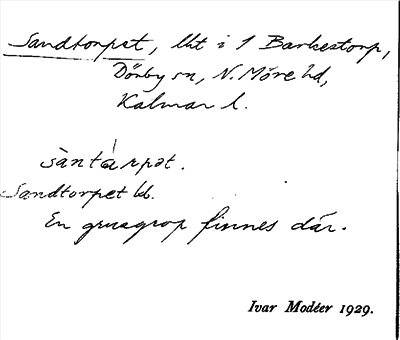 Sandtorpet, lht i 1 Barkestorp,
Dörby sn, N. Möre hd,
Kalmar l.
sàntárpət.
Sandtorpet bb.
En grusgrop finnes där.
Ivar Modéer 1929.